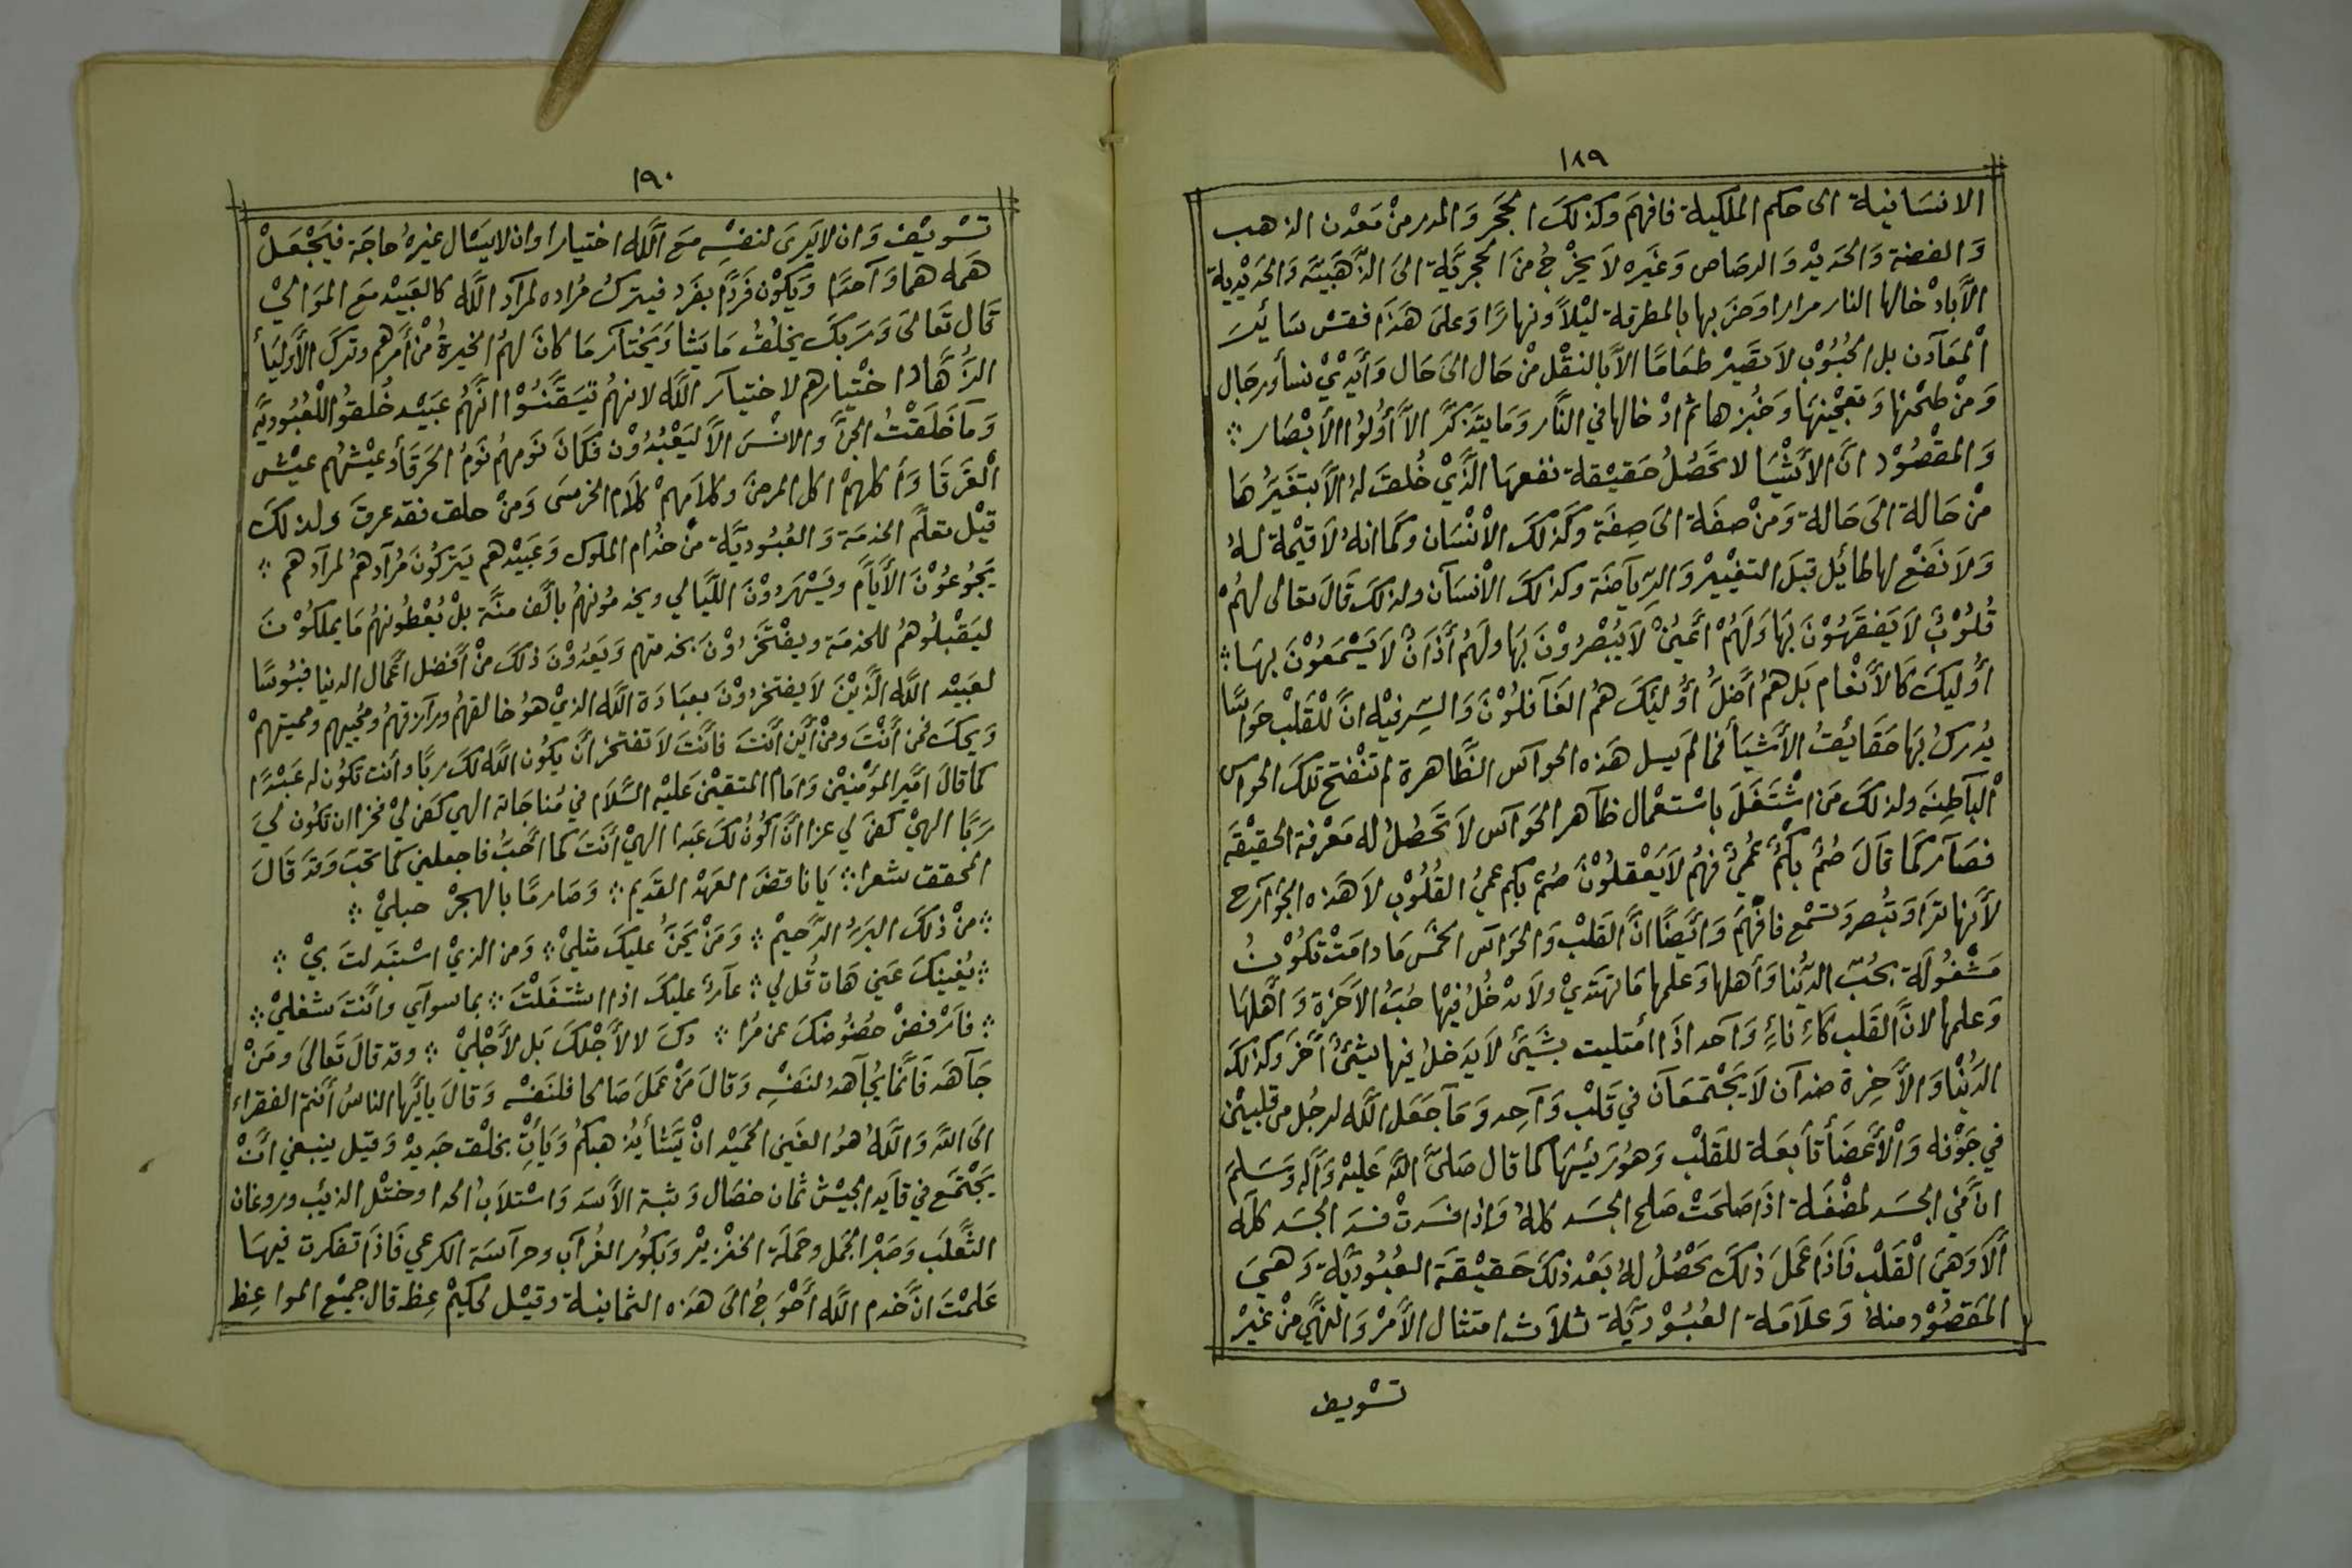 ١٨٩
الانسَانيلة الى حكم الملكية فافهَم وكذلكَ الحَجَر وَالمدر منْ مَعْدن الذهب
وَالفضة وَالحَديْد وَالرصَاص وَغَيره لاَ يخْرجُ منَ الحجريَّة الى الذَّهَبيَّة وَالحَديْدية
الاَّ بادْخالها النار مرارا وَضرَبها بالمطرقة ليْلاً ونهارًا وَعلىَ هَذَا فقسْ سَائرَ
اْلمعَآدن بل الحُبُوْبِ لاَ تصَيْر طعَامًا الاَّ بالنقْل منْ حَال الىَ حَال وَأيْديْ نسأ ورجَال
وَمنْ طحْنها وَتعجْينهَا وَخُبزها ثم ادْخالها في النَّار وَمَا يتَذكرُ الاَّ أوُلوُا الأَبْصَار
وَالمقْصُوْد انَّ الأَشْيَا لا تحَصُلُ حَقيْقة نفعهَا الَّذَيْ خُلقَ لهُ الاَّ بتغَيرُهَا
منْ حَالة الىَ حَالة وَمنْ صفَة الىَ صِفَة وَكذَلكَ الاْنْسَان وكَمَا انهُ لاَ قيْمة لهُ
وَلاَ نَفْع لها طائِل قبلَ التغييْر وَالرِّيآضَة وكذلكَ الاْنسَآن ولذلكَ قَالَ تعَالى لهُمْ
قُلُوْبٌ لاَ يَفقَهُوْنَ بَها وَلَهُمْ أعَيُنْ لاَ يُبْصرُوْنَ بَها ولَهمُ أَذَآنٌ لاَ يَسْمَعُوْنَ بهَا
أوُليكَ كَالأَنْعَام بَل هُمُ أَضَلُّ أوُليَكَ همُ الغَآفلُوْنَ وَالسِّر فيْه انَّ للْقَلبْ حَوَاسًّا
يُدرَكُ بهَا حَقَائقُ الأشَيَأ فما لَم يسل هَذه الحوآس الظَّاهرة لم تنْفتح تلكَ الحواس
اْلبآطِنَه ولذلكَ مَن اشْتَغَلَ باسْتعْمال ظآهر الحَوَآس لاَ تَحَصُلُ له مَعْرفة الحقيْقَه
فصَآر كَمَا قَالَ صُمٌ بكْمٌ عُميٌ فهُم لاَ يَعْقلُوْنَ صُمٌ بكم عميُ القُلُوْبِ لاَ هَذه الجوآرح
لأَنها ترَا وَتُبْصر وَتسْمع فافَهَمْ وَأيَضًا انَّ القَلبْ وَالحَوَآسَ الخمْس مَا دامَتْ تكوُنُ
مَشْغُولَة بحُبّ الدنُّيَا وَأهلها وَعلمها مَا تهتَديْ ولاَ يدْخُلُ فيْها حُبُّ الاَخرَة وَأهَلهَا
وَعلمها لانَّ القَلب كَاءِ نَاءٍ وَآحد اذَا اْمتليت بشَيَئْ لاَ يَدَخلُ فيها شيئٌ أَخَر وكذلكَ
الدُنْيَا وَالاَّخِرة ضدآن لاَ يَجْتمعَآن في قَلبْ وَآحِد وَمَآ جَعَل اللَّه لرجُل من قلبيْن
في جَوْفه وَاْلأعْضَأ تآبعَة للقَلبْ وَهُوَ رئيسُهَا كما قال صَلىَّ اللهَ عَليْه وَآله وَسَلمَ
انَّ في الجسَد لمضْغَة اذَا صَلحَتْ صَلح الجسَد كلهُ وَاذا فسَدَتْ فسَدَ الجسَد كلهُ
أَلاَ وَهيَ اْلقَلبْ فَاذَا عَمَلَ ذلكَ تحَصُلُ لهُ بَعْد ذلكَ حَقيْقَة العبُوُديَّة وَهيَ
المقَصُوْد منهُ وَعلاَمَة العُبُوْديَّة ثلاَث امتثال الأَمْر وَالنهَّي منْ غيْر
تسْويف
١٩٠
تسْويْف وَان لا يَرىَ لنفسِْه مَع اللَّه اختيارا وان لا يسَال غيرهُ حاجَة فيَجْعَلْ
همَه هما وَآحدًا وَيكَوُنْ فَردًا بفرَد فيترك مُراده لمرآد اللَّه كالعَبيْد مَع الموَاليْ
قال تعَالىَ وَرَبكَ يخلقُ مَا يشَا وَيَخْتآر مَا كانَ لهمُ الخيرةُ منْ أمَرهمِ وتركَ الأوليَأ
الزُهَّاد اخْتيَارهم لاختيآر اللَّه لانهمُ تيَقَّنُوْا انَّهُم عَبَيْد خُلقوُا للْعُبُوديَّه
وَمَآ خَلَقْتُ الجنَّ وَالانْسَ الاَّ ليَعْبُدُوْن فكَانَ نَومهمُ نَومُ الحَرقَأ وعيْشهُم عيْش
اْلغَرقَا وَأكلهمْ اكل المرضىَ وكلاَمهمْ كلاَم الخرسىَ وَمنْ حلق فقد عرفَ ولذلكَ
قيْل تعلَّم الخدمَة وَالعُبُوديَّة منْ خدُام الملوك وَعَبيْدهم يَتركُونَ مُرآدهمُ لمرآدهم
يَجُوعُوْنَ الأَيَّامَ ويَسْهَروُوْنَ اللَّيَالي ويخدمُونهمُ بألَف منَّة بلْ يُعْطُونهمُ مَا يملكُوْنَ
ليَقْبلُوهمُ للخدمَة ويفْتَخَرُوْنَ بخدمتهم وَيَعَدُوْنَ ذلكَ منْ أَفضل أعَمال الدنيا فبُوسًا
لعَبيْد اللَّه الَّذَيْنَ لاَ يفتخرُوْنَ بعبَادَة اللَّه الذيْ هُو خالقهُم ورآزقهمُ ومُحييهم ومميتهمْ
وَيحكَ فمن أَنْتَ ومنْ أيَن أَنْتَ فأنَتَ لاَ تفتخر أنَ يكوُن اللَّه لكَ ربًّا وأنت تكوُن له عَبْدًا
كما قَالَ امَيْر المؤْمنيْن وَامَام المتقيْن عَليْه السَّلاَم في مُناجَاته الهي كفىَ ليْ فخرا ان تكوُن ليَ
رَبًّا الهيْ كفىَ لي عزا انَّ اكوُنُ لكَ عَبدا الهيْ أَنتَ كما أحَبُّ فاجعلني كما تحَبَ وَقدَ قَالَ
المحقق شعرا يَا ناقضَ العَهْد القَديم وَصَارمًا بالهجرْ حبليْ
منْ ذلكَ البَرُ الرَّحيمْ وَمَنْ يَحنُّ عليكَ مثليْ وَمن الذيْ اسْتبَدلتَ بيْ
يُغينكَ عَني هَات قُل لي عآرٌ عليكَ اذا اشتغَلْتَ بما سوآي وأنَتَ شغليْ
فأَرْفضْ حضُوُضكَ عن مُرا دكَ لا لأَجْلكَ بَل لأَجْليْ وقد قالَ تَعَالىَ ومَنْ
جَآهَد فَانمَّا يجُآهدُ لنَفسِْه وَقالَ مَنْ عَملَ صَالحا فلنَفسْه وَقالَ يايَّها الناسُ أنَتم الفقراء
الىَ اللهَ وَاللَّهُ هوُ الغَني الحَميْد انْ يَشأ يُذهبكمُ وَيَأتِ بخلْق جَديدْ وَقيل ينبغي انَّ
يَجْتمَع في قآيد الجيْش ثمان خصَال وَثبة الأَسَد وَاسْتلاَب الحدا وختْل الذيئب وروغان
الثَّعلَب وَصَبْر الجمَل وحمَلَة الخنْزيرْ وَبكوُر الغُرآب وحرآسَة الكرعي فَاذَا تفكرت فيهَا
عَلمْتَ انَّ خدم اللَّه أَحْوَجُ الىَ هَذه الثمانية وقيْل لحكيمْ عِظْ قال جميْع المواعِظ